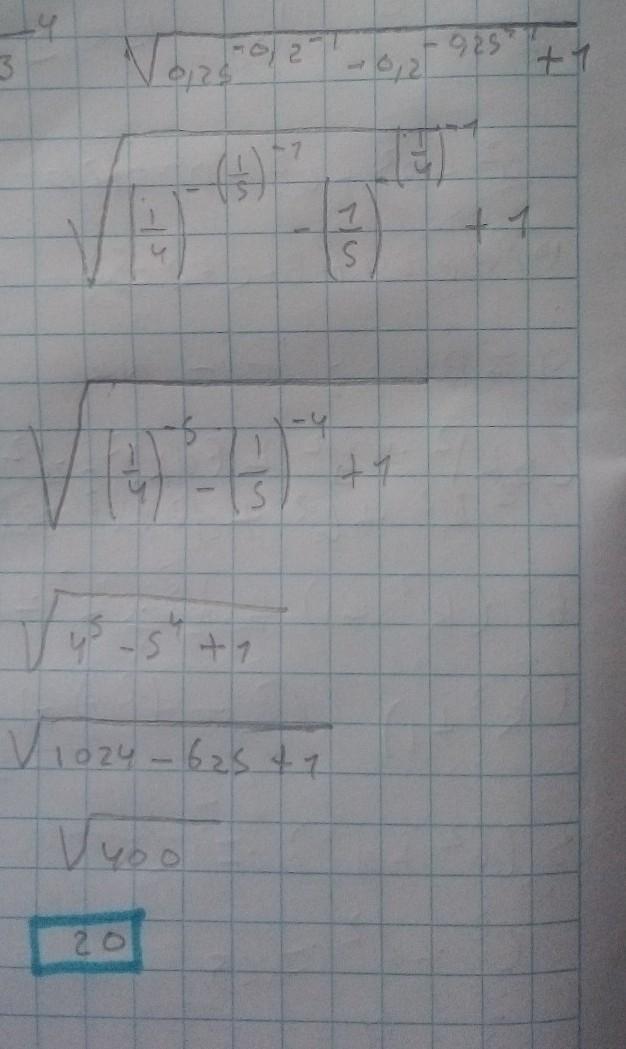 4
3
√0,25^-0,2^-1 - 0,2^-0,25^-1 + 1
√(1/4)^-(1/5)^-1 - (1/5)^-(1/4)^-1 + 1
√(1/4)^-5 - (1/5)^-4 + 1
√4^5 - 5^4 + 1
√1024 - 625 + 1
√400
20